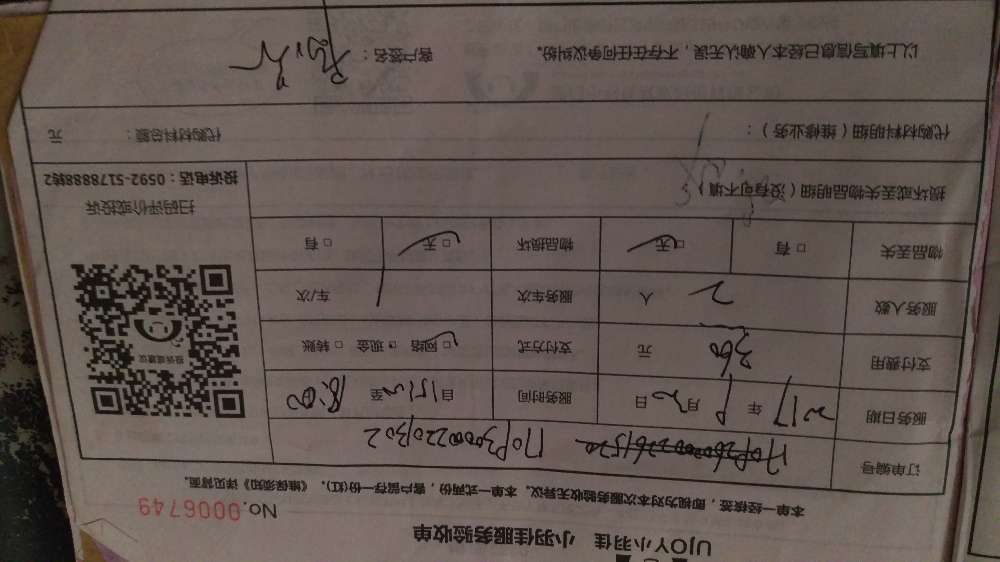 UJOY小羽佳 小羽佳服务验收单
No.0006749
本单一经接签，即视为对本次服务验收无异议。本单一式两份，客户留存一份(红)。《维保须知》详见背面。
订单编号 170P30002201302
服务日期 2017 年 9 月 20 日 服务时间 自 15:00 至 18:00
支付费用 360 元 支付方式 □ 网络 □ 现金 □ 转账
服务人数 2 人 服务车次 1 车/次
物品丢失 □ 有 □ 无 物品损坏 □ 无 □ 有
投诉或建议
扫码评价或投诉
投诉电话：0592-5178888转2
损坏或丢失物品明细（没有可不填）
代购材料明细（维修业务）： 代购材料总额： 元
以上填写信息已经本人确认无误，不存在任何争议纠纷。 客户签名：